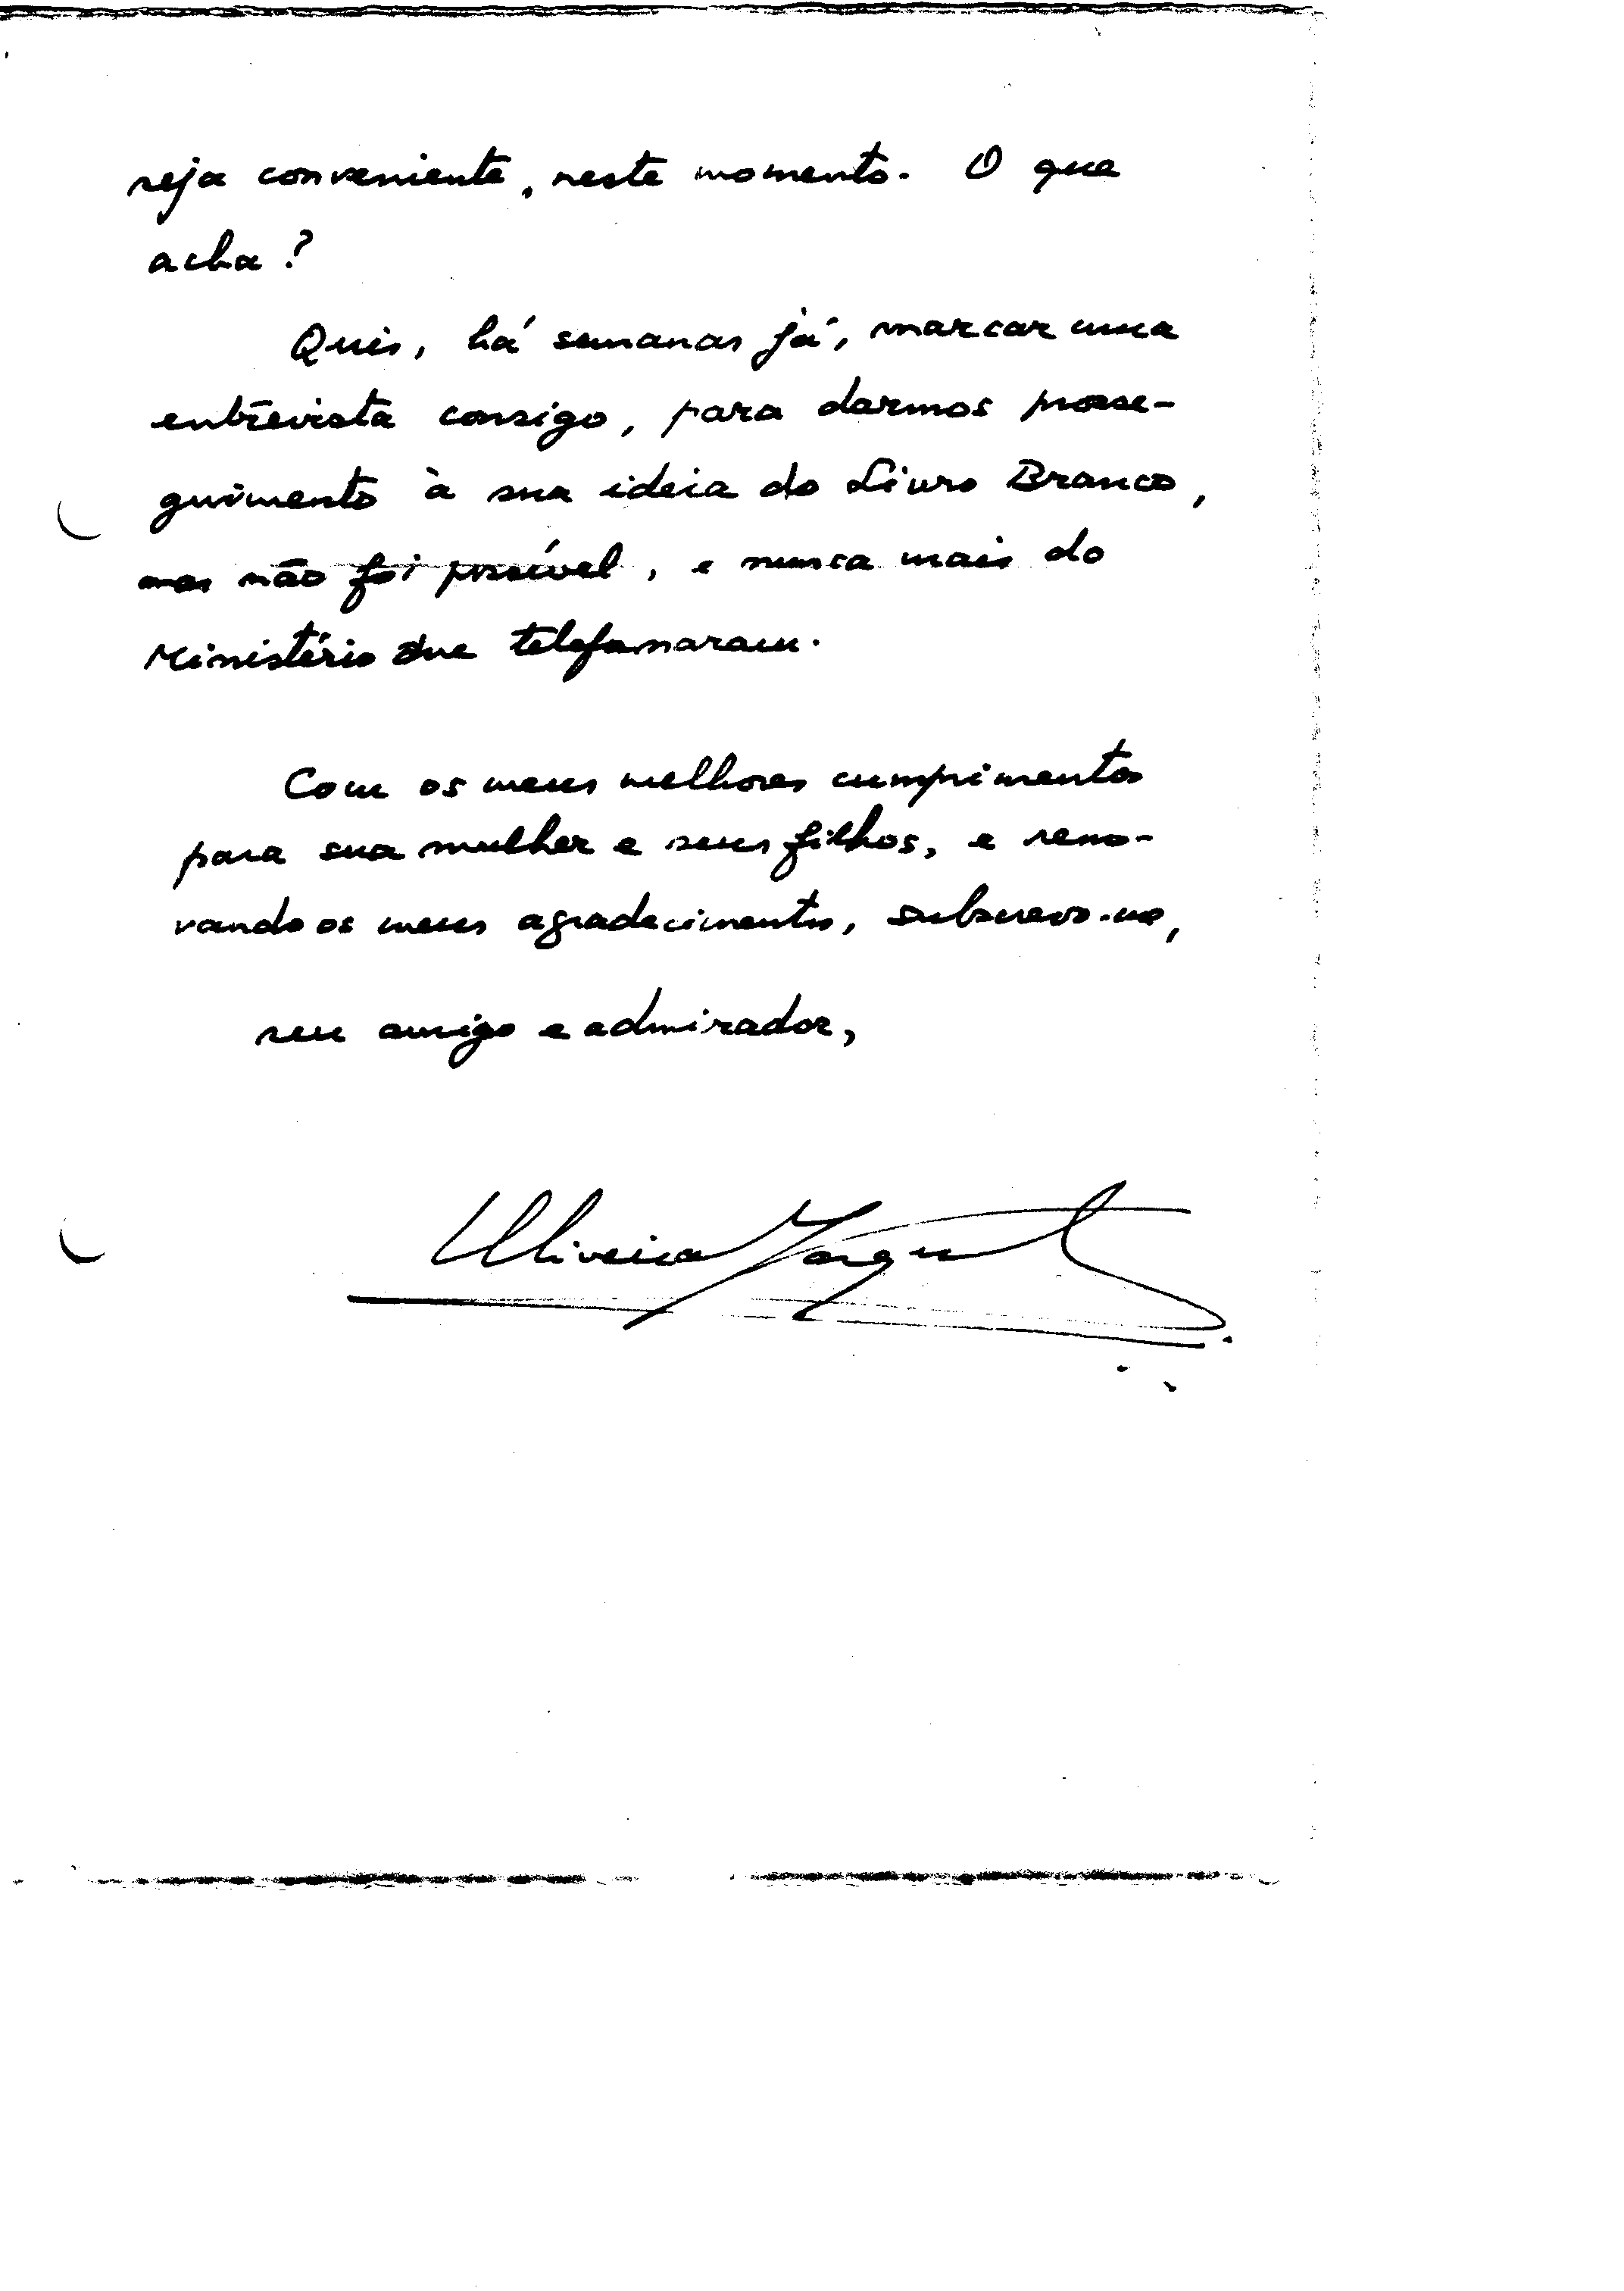 seja conveniente, neste momento. O que
acha?
Quis, há semanas já, marcar uma
entrevista consigo, para darmos prosse-
guimento à sua ideia do Livro Branco,
mas não foi possível, e nunca mais do
Ministério me telefonaram.
Com os meus melhores cumprimentos
para sua mulher e seus filhos, e reno-
vando os meus agradecimentos, subscrevo-me,
seu amigo e admirador,
Oliveira Marques